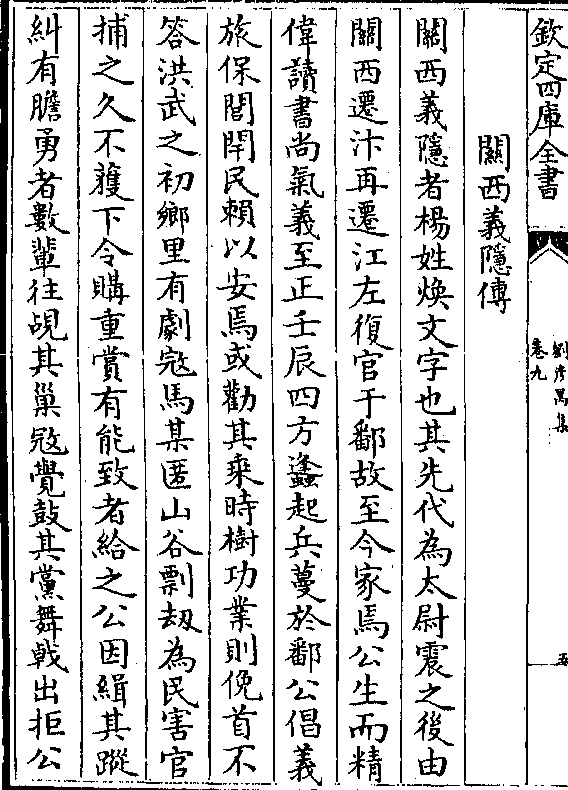 欽定四庫全書
劉彥昺集
卷九
五
關西義隱傳
關西義隱者楊姓煥文字也其先代為太尉震之後由
關西遷汴再遷江左復官于鄱故至今家焉公生而精
偉讀書尚氣義至正壬辰四方蠭起兵蔓於鄱公倡義
旅保閭閈民賴以安焉或勸其乘時樹功業則俛首不
答洪武之初鄉里有劇宼馬某匿山谷剽刼為民害官
捕之久不獲下令購重賞有能致者給之公因緝其蹤
糾有膽勇者數輩往覘其巢宼覺鼓其黨舞戟出拒公